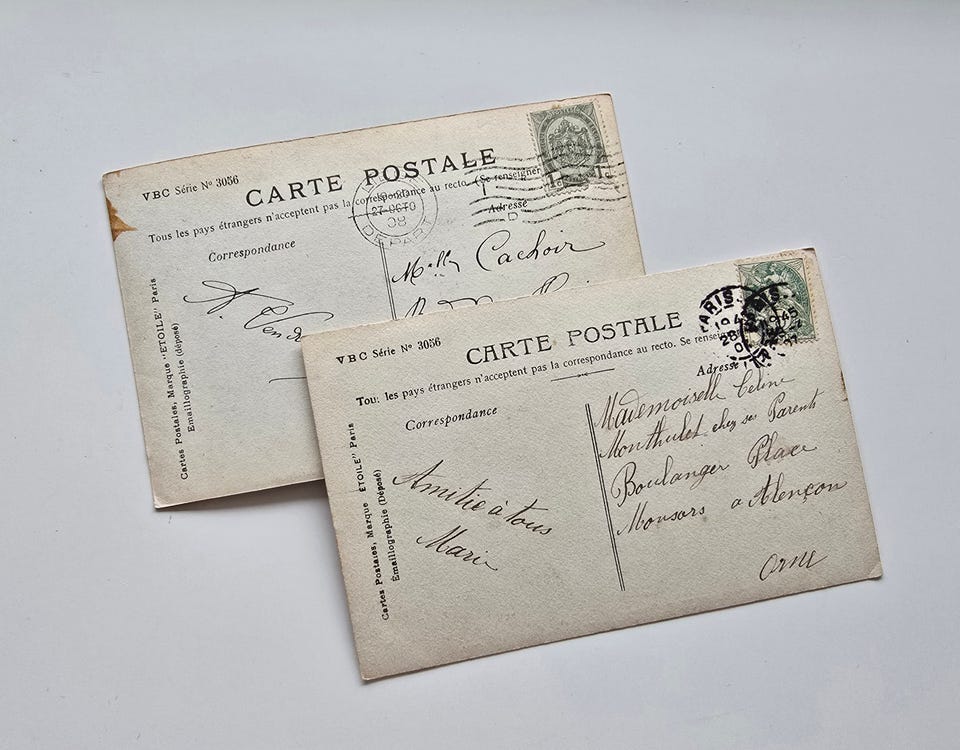 VBC Série Nº 3056
CARTE POSTALE
Tous les pays étrangers n'acceptent pas la correspondance au recto. (Se renseigner
Correspondance
Adresse
D
27 OCTO
08
DEPART
Cachoir
Cartes Postales, Marque "ETOILE" Paris
Emaillographie (déposé)
VBC Série Nº 3056
CARTE POSTALE
Tous les pays étrangers n'acceptent pas la correspondance au recto. Se renseigner
Correspondance
Adresse
PARIS
1945
Amitié à tous
Marie
Mademoiselle Celine
Monthulet chez ses Parents
Boulanger Place
Monsors a Alençon
Orne
Cartes Postales, Marque ÉTOILE" Paris
Émaillographie (Déposé)